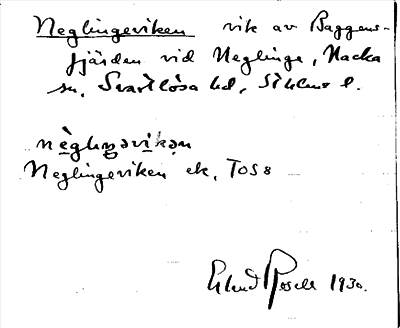 Neglingeviken vik av Baggens-
fjärden vid Neglinge, Nacka
sn, Svartlösa hd, Sthlms l.
nèglıŋəvi̱kən
Neglingeviken ek, TOS8
Erland Rosell 1930.